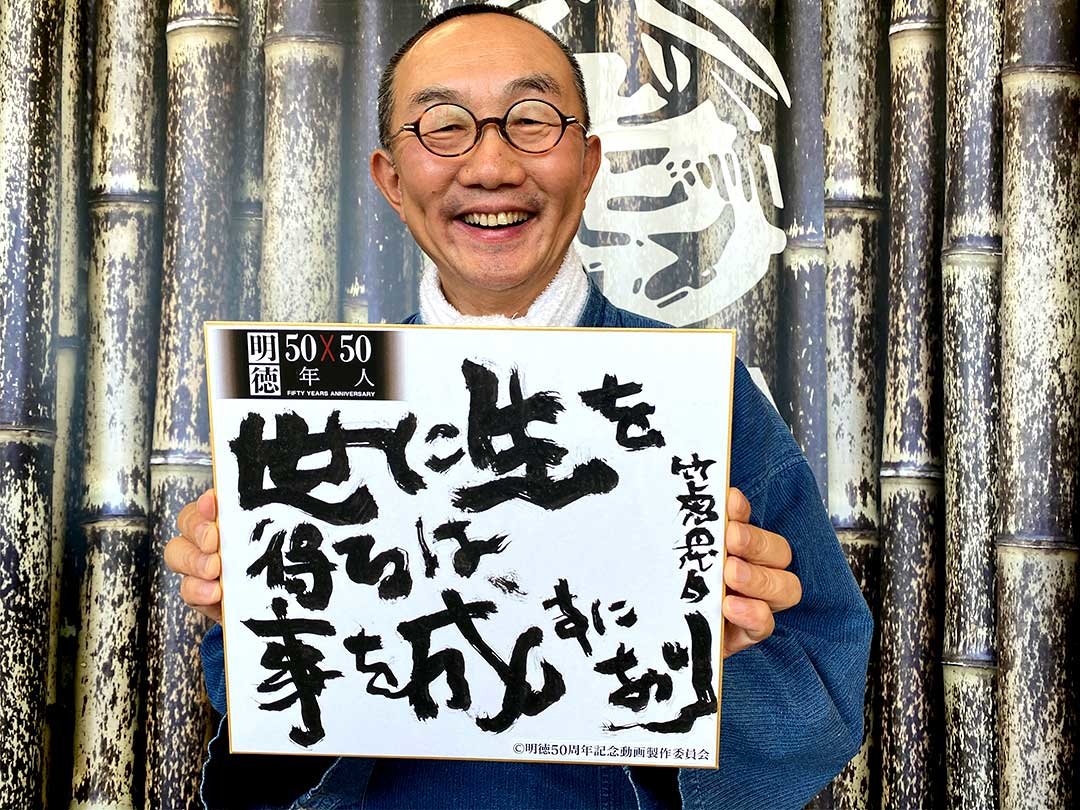 明徳
50X50
年 人
FIFTY YEARS ANNIVERSARY
世に生を
得るは、
事を成すにあり
竹虎四代目
©明徳50周年記念動画製作委員会